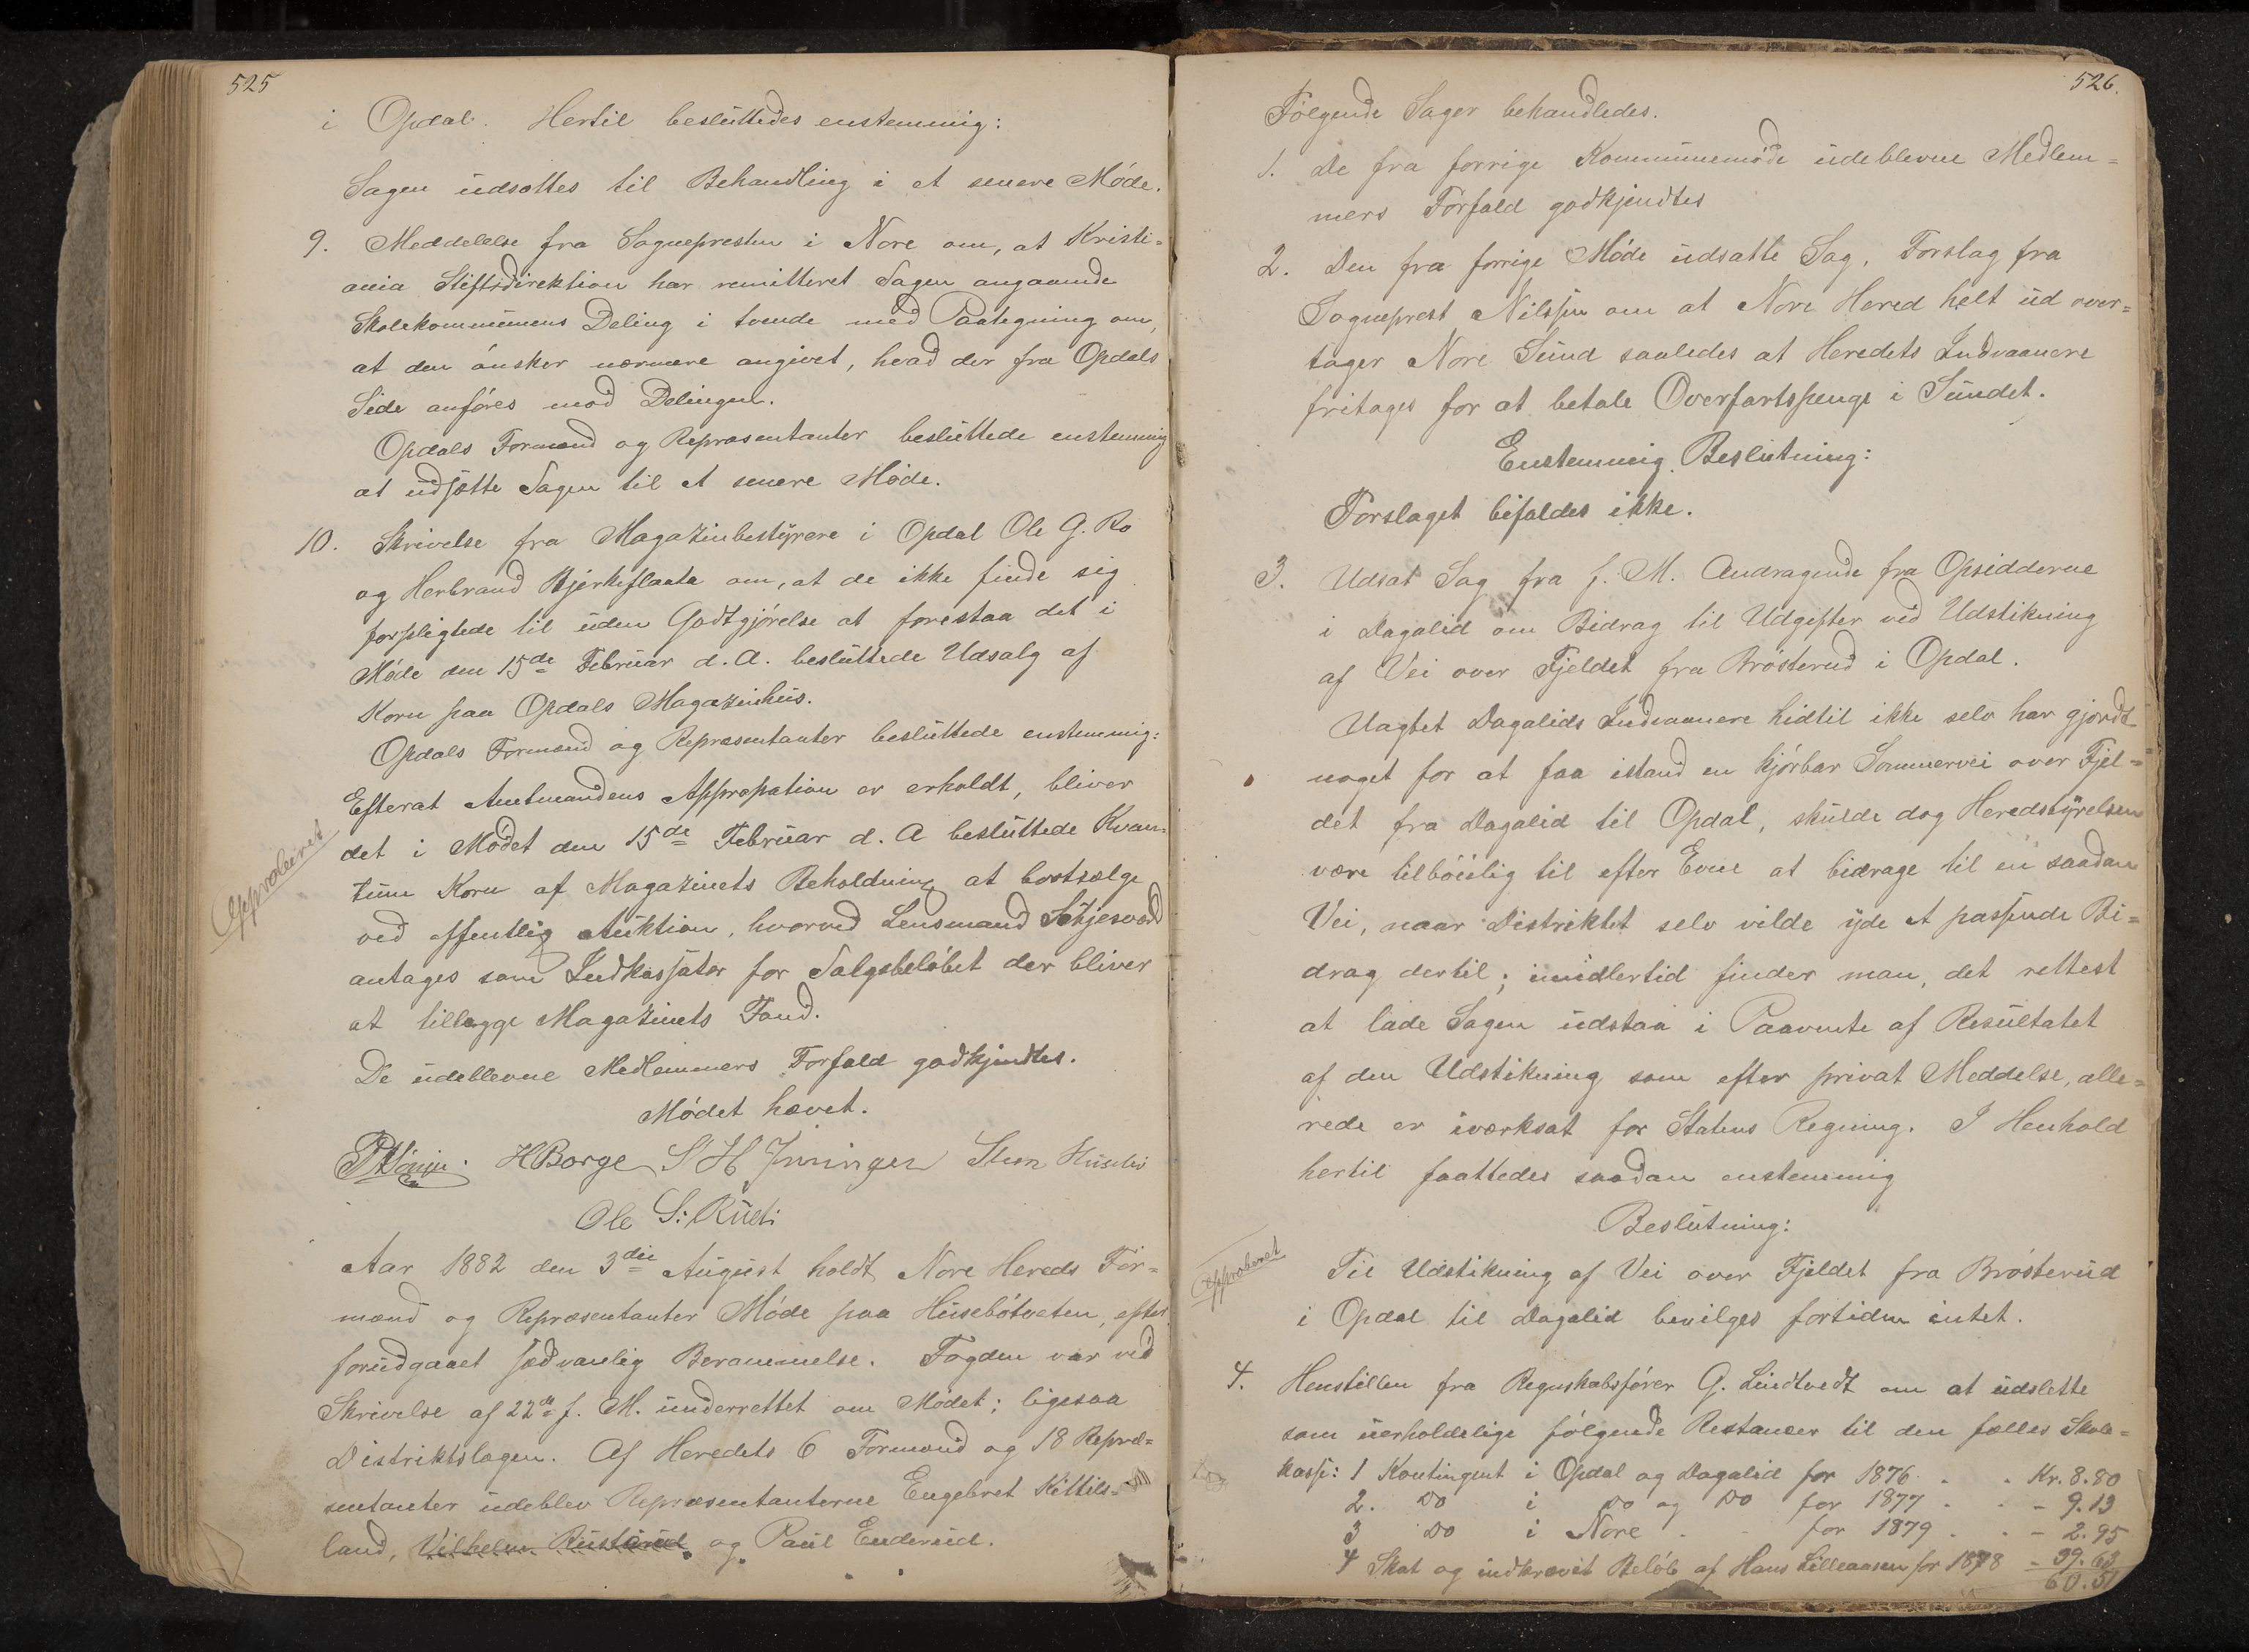 525
i Opdal. Hertil besluttedes enstemmig:
Sagen udsattes til Behandling i et senere Møde.
9. Meddelelse fra Sognepresten i Nore om, at Kristi=
ania Stiftsdirektion har remitteret Sagen angaaende
Skolekommunens Deling i tvende med Paategning om,
at den ønsker nærmere angivet, hvad der fra Opdals
Side anføres mod Delingen.
Opdals Formænd og Repræsentanter besluttede enstemmig
at udsætte Sagen til et senere Møde.
10. Skrivelse fra Magazinbestyrere i Opdal Ole G. Ro
og Herbrand Bjerkeflaata om, at de ikke finde sig
forpligtede til uden Godtgjørelse at forestaa det i
Møde den 15de Februar d. A. besluttede Udsalg af
Korn paa Opdals Magazinhus.
Opdals Formænd og Repræsentanter besluttede enstemmig:
Efterat Amtmandens Appropation er erholdt, bliver
det i Mødet den 15de Februar d. A besluttede Kvan=
tum Korn af Magazinets Beholdning at bortsælge
ved offentlig Auktion, hvorved Lensmand
antages som Indkassator for Salgsbeløbet der bliver
at tillægge Magazinets Fond.
Approberet
De udeblevne Medlemmers Forfald godkjendtes.
Mødet hævet.
HBorge S H Inninger Sten
Ole S: Rudi
Aar 1882 den 3die August holdt Nore Hereds For=
mænd og Repræsentanter Møde paa Husebøtveten, efter
forudgaaet sædvanlig Berammelse. Fogden var ved
Skrivelse af 22de f. M. underrettet om Mødet; ligesaa
Distriktslægen. Af Heredets 6 Formænd og 18 Repræ=
sentanter udeblev Repræsentanterne Engebret Kittils=
land, Vilhelm Rustand og Paul Enderud.
526.
Følgende Sager behandledes.
1. De fra forrige Kommunemøde udeblevne Medlem=
mers Forfald godkjendtes
2. Den fra forrige Møde udsatte Sag, Forslag fra
Sogneprest Nilssen om at Nore Hered helt ud over=
tager Nore Sund saaledes at Heredets Indvaanere
fritages for at betale Overfartspenge i Sundet.
Enstemmig Beslutning:
Forslaget bifaldes ikke.
3. Udsat Sag fra f. M. Andragende fra Opsidderne
i Dagalid om Bidrag til Udgifter ved Udstikning
af Vei over Fjeldet fra Brøsterud i Opdal.
Uagtet Dagalids Indvaanere hidtil ikke selv har gjordt
noget for at faa istand en kjørbar Sommervei over Fjel=
det fra Dagalid til Opdal, skulde dog Heredstyrelsen
være tilbøielig til efter Evne at bidrage til en saadan
Vei, naar Distriktet selv vilde yde et passende Bi=
drag dertil; imidlertid finder man, det rettest
at lade Sagen udstaa i Paavente af Resultatet
af den Udstikning som efter privat Meddelse, alle=
rede er iværksat for Statens Regning. I Henhold
hertil fattedes saadan enstemmig
Beslutning:
Approberet
Til Udstikning af Vei over Fjeldet fra Brøsterud
i Opdal til Dagalid bevilges fortiden intet.
4. Henstillen fra Regnskabsfører G. Lindtvedt om at udslette
som uerholdelige følgende Restancer til den fælles Skole=
kasse: 1 Kontingent i Opdal og Dagalid for 1876 . . Kr. 8.80
2. Do i Do og Do for 1877 . . - 9.13
3 Do i Nore . - for 1879 . . - 2.95
4 Skat og indkrævet Beløb af Hans Lilleaasen for 1878 - 39.63
60.51